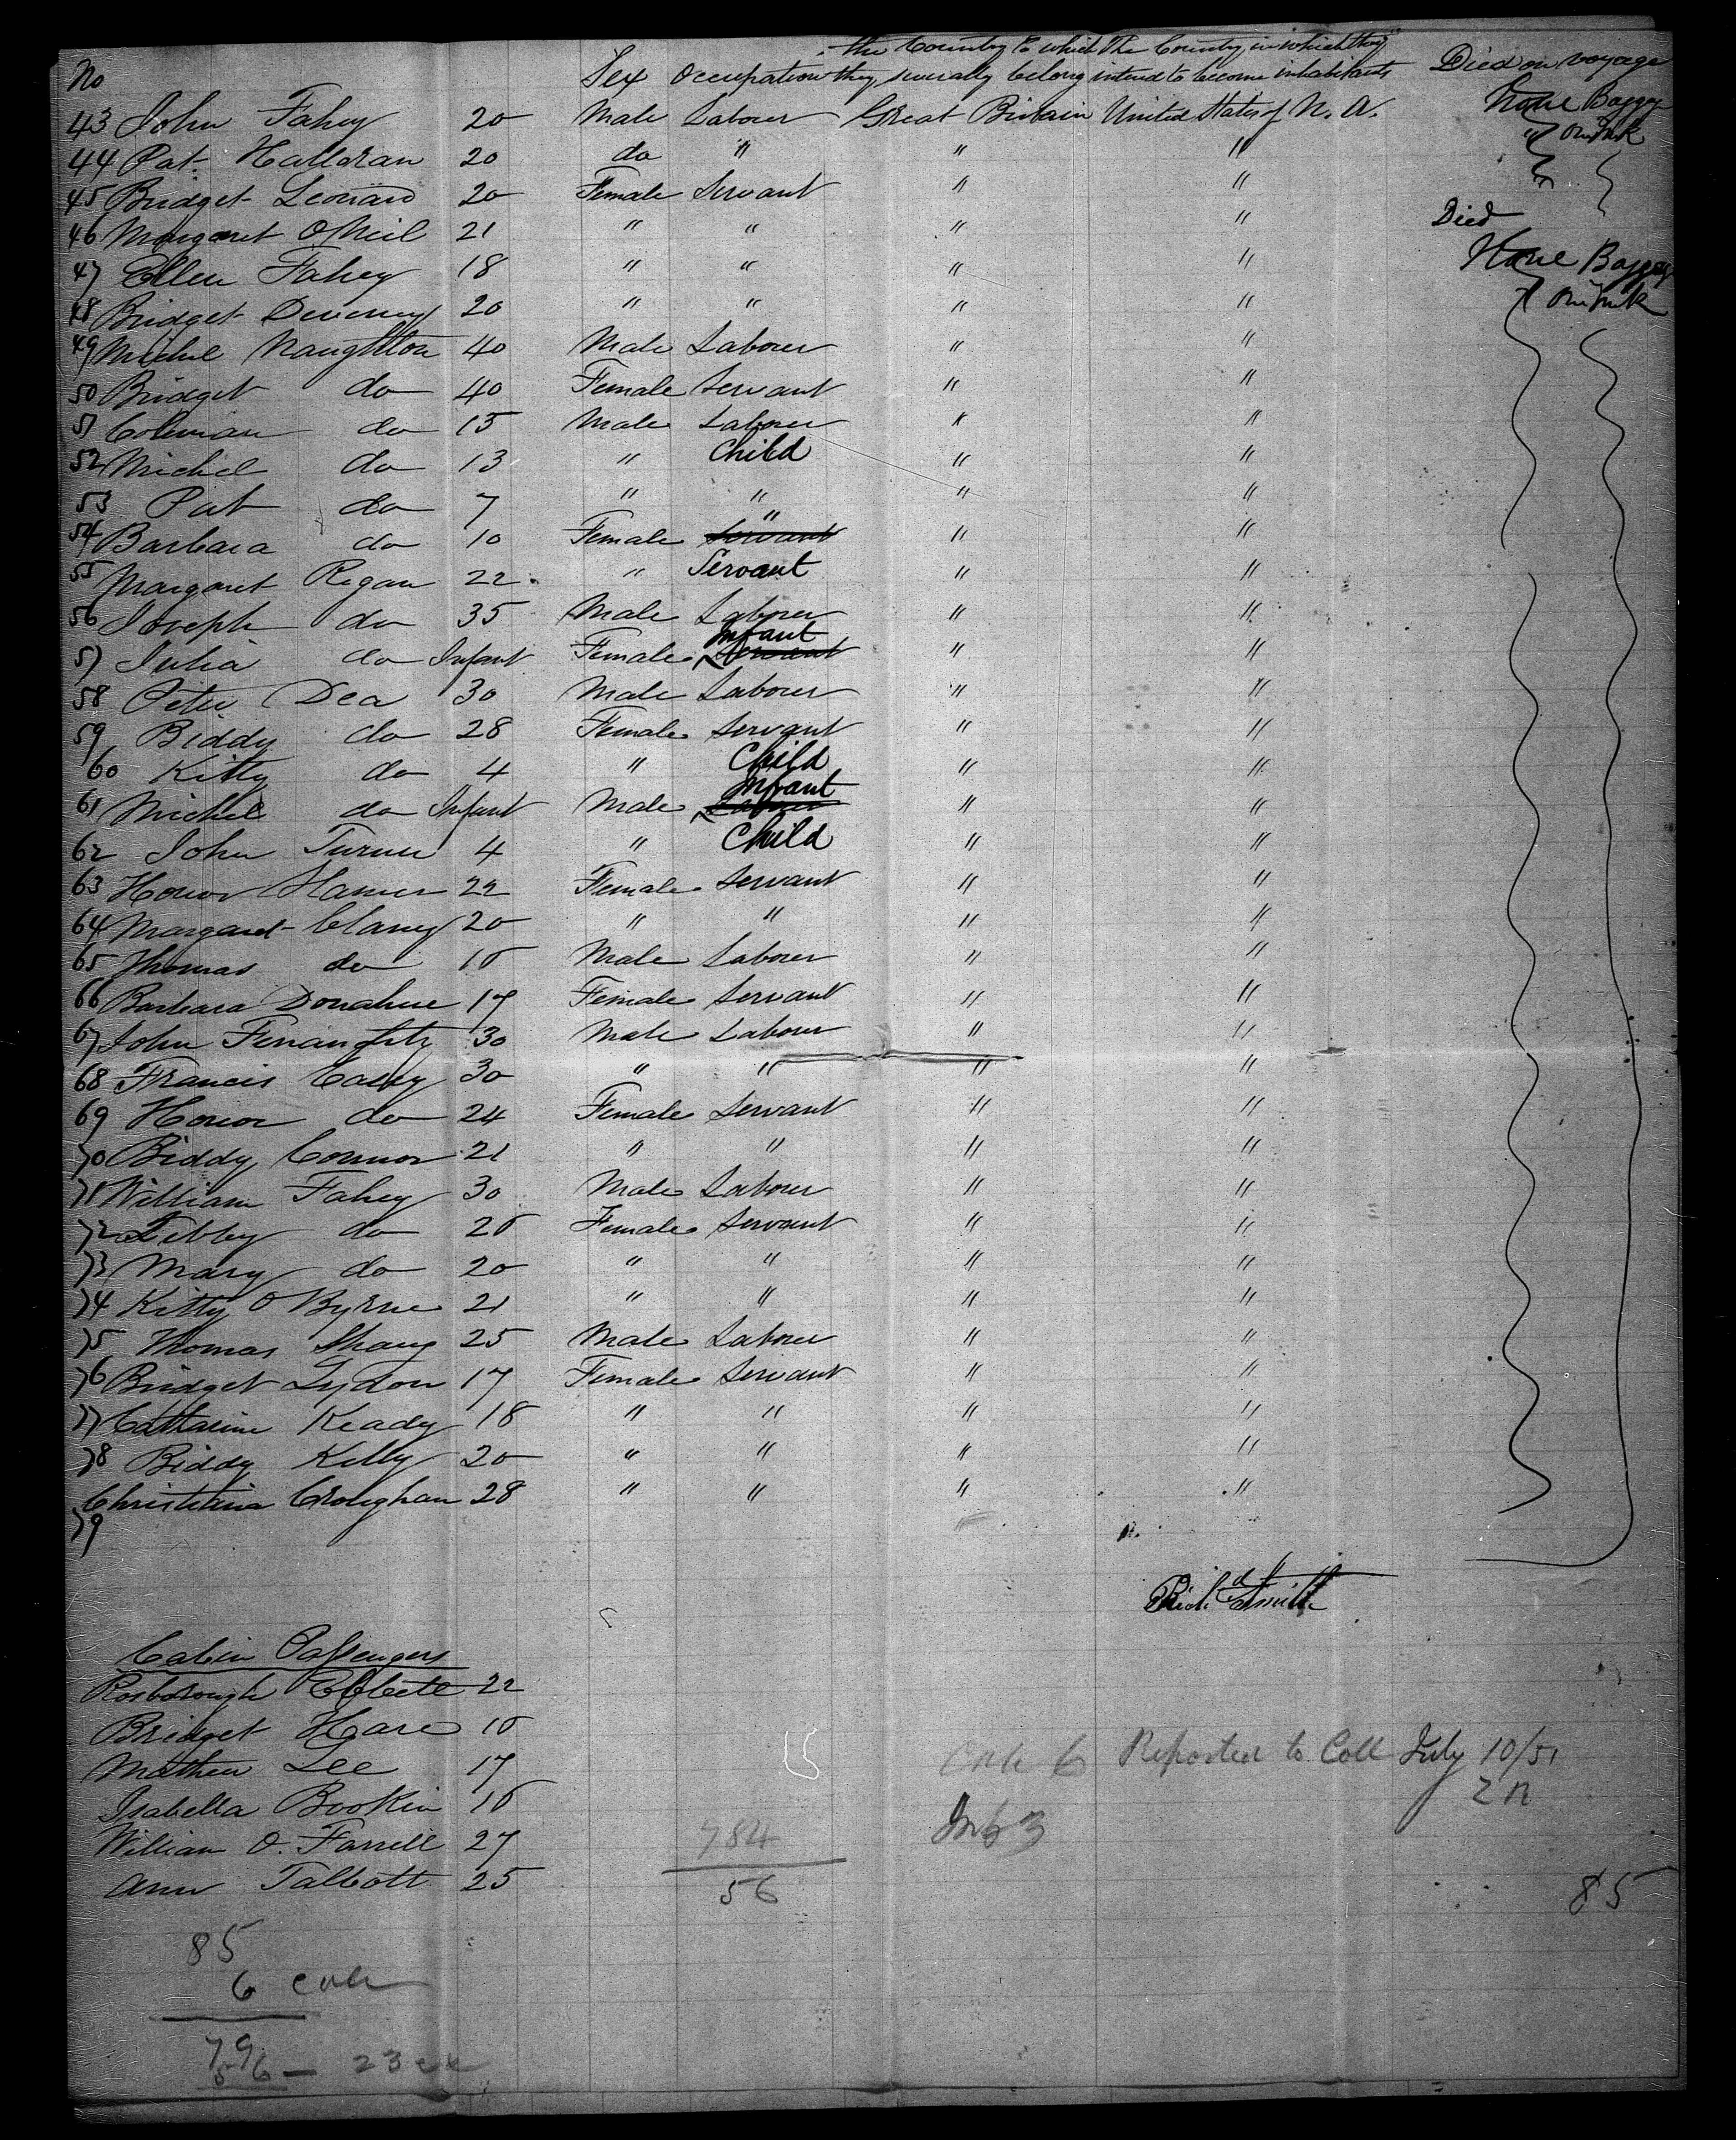 No Sex Occupation the Country to which they severally belong The Country in which they intend to become inhabitants Died on voyage
43 John Fahey 20 Male Laborer Great Britain United States of N. A. None Baggage
44 Pat Halloran 20 do " " " " One Trunk
45 Bridget Leonard 20 Female Servant " "
46 Margaret O Neil 21 " " " " Died
47 Ellen Fahey 18 " " " " None Baggage
48 Bridget Deveney 20 " " " " One Trunk
49 Michel Naughton 40 Male Laborer " "
50 Bridget do 40 Female Servant " "
51 Coleman do 15 Male Laborer " "
52 Michel do 13 " Child " "
53 Pat do 7 " " " "
54 Barbara do 10 Female Servant " " "
55 Margaret Regan 22 " Servant " "
56 Joseph do 35 Male Laborer " "
57 Julia do Infant Female Servant Infant " "
58 Peter Dea 30 Male Laborer " "
59 Biddy do 28 Female Servant " "
60 Kitty do 4 " Child " "
61 Michel do Infant Male Laborer Infant " "
62 John Turner 4 " Child " "
63 Honor 22 Female Servant " "
64 Margaret Clancy 20 " " " "
65 Thomas do 18 Male Laborer " "
66 Barbara Donahue 17 Female Servant " "
67 John 30 Male Laborer " "
68 Francis Casey 30 " " " "
69 Honor do 24 Female Servant " "
70 Biddy Connor 21 " " " "
71 William Fahey 30 Male Laborer " "
72 Libby do 28 Female Servant " "
73 Mary do 20 " " " "
74 Kitty O Byrne 21 " " " "
75 Thomas 25 Male Laborer " "
76 Bridget Lydon 17 Female Servant " "
77 Catharine Keady 18 " " " "
78 Biddy Kelly 20 " " " "
Christiana Croughan 28 " " " "
79
Richd Smith
Cabin Passengers
Rosborough 22
Bridget Hare 18
Mathew Lee 17
Isabella Bookin 18
William O. Farrell 27
Ann Talbott 25
Cab 6 Reported to Coll July 10/51
Inf 3
784
56
85
85
6 cab
79
56 - 23